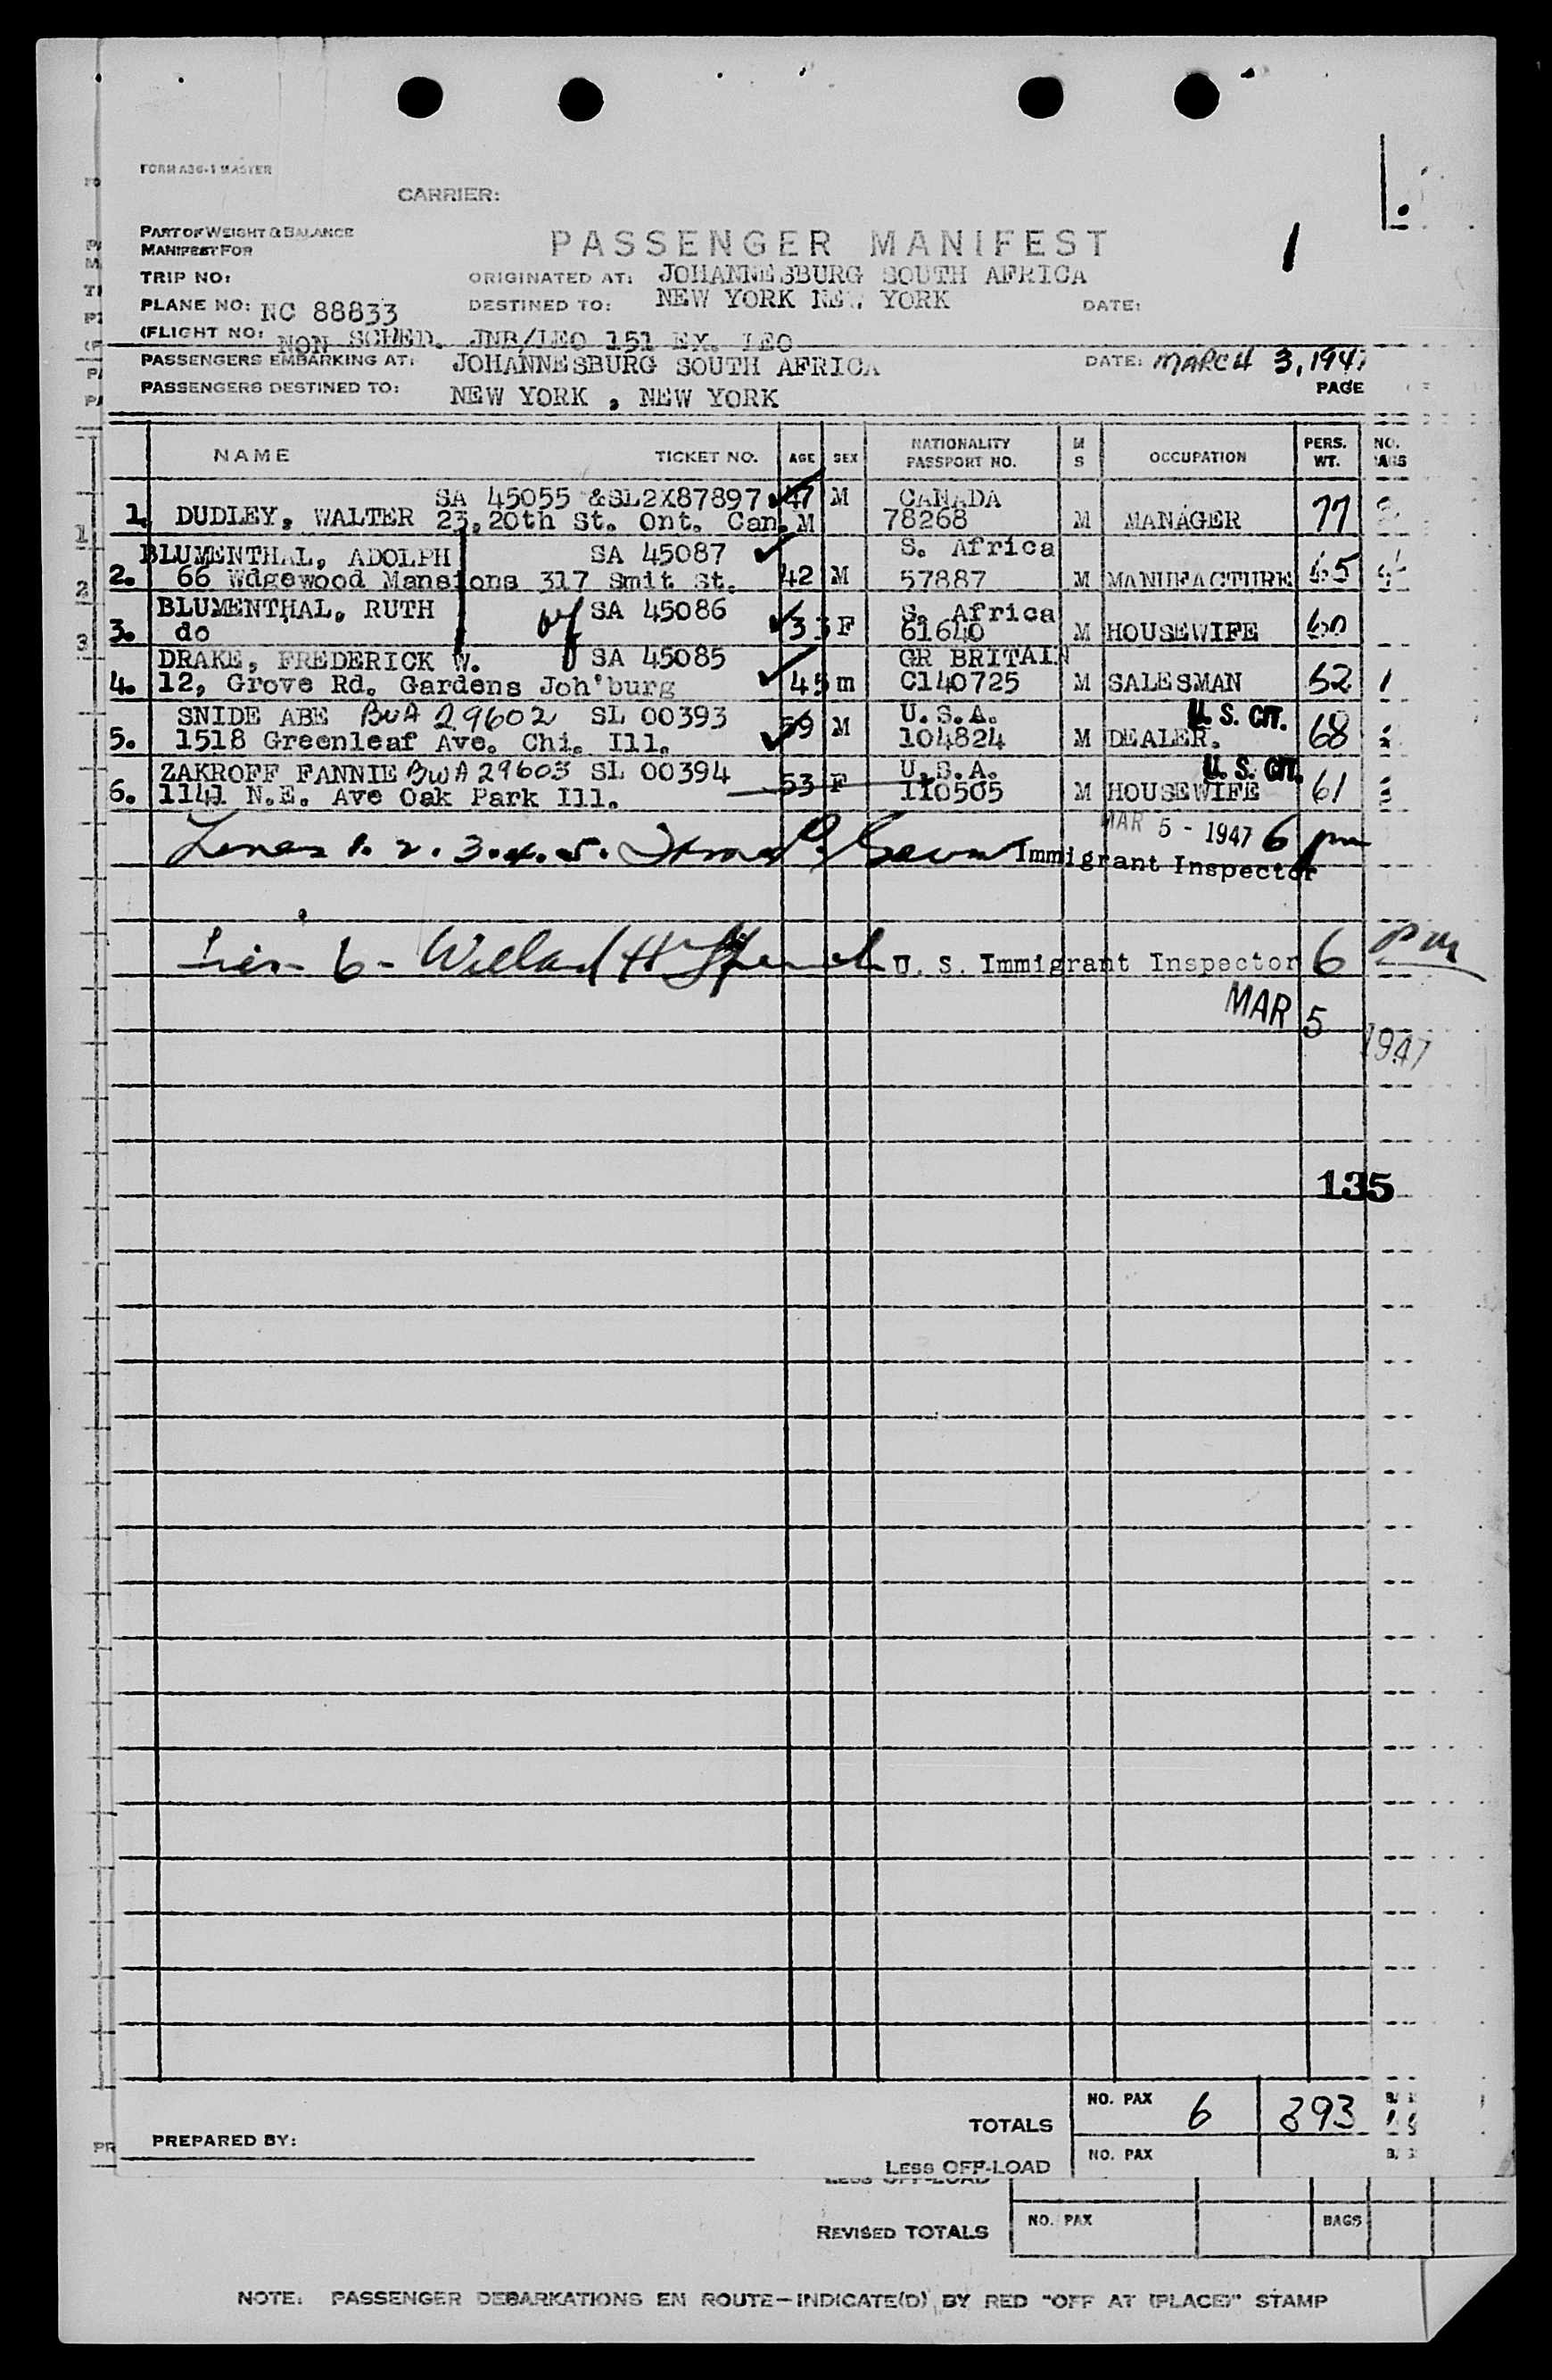 FORM A36-1 MASTER
CARRIER:
PART OF WEIGHT & BALANCE
MANIFEST FOR
PASSENGER MANIFEST
1
TRIP NO:
ORIGINATED AT: JOHANNESBURG SOUTH AFRICA
PLANE NO: NC 88833
DESTINED TO: NEW YORK NEW YORK
DATE:
(FLIGHT NO: NON SCHED. JNB/LEO 151 EX. LEO
PASSENGERS EMBARKING AT: JOHANNESBURG SOUTH AFRICA
DATE: MARCH 3, 1947
PASSENGERS DESTINED TO: NEW YORK , NEW YORK
PAGE
NAME TICKET NO. AGE SEX NATIONALITY PASSPORT NO. M S OCCUPATION PERS. WT. NO. BAGS
SA 45055 &SL2X87897 47 M CANADA
1. DUDLEY, WALTER 23,20th St. Ont. Can. M 78268 M MANAGER 77
BLUMENTHAL, ADOLPH SA 45087 S. Africa
2. 66 Wdgewood Mansions 317 Smit St. 42 M 57887 M MANUFACTURE 65
BLUMENTHAL, RUTH wf SA 45086 S. Africa
3. do 33 F 61640 M HOUSEWIFE 60
DRAKE, FREDERICK W. SA 45085 GR BRITAIN
4. 12, Grove Rd. Gardens Joh'burg 45 m C140725 M SALESMAN 62 1
SNIDE ABE BWA 29602 SL 00393 59 M U.S.A. U.S. CIT.
5. 1518 Greenleaf Ave. Chi. Ill. 104824 M DEALER. 68
ZAKROFF FANNIE BWA 29603 SL 00394 53 F U.S.A. U.S. CIT.
6. 1141 N.E. Ave Oak Park Ill. 110505 M HOUSEWIFE 61
MAR 5 - 1947 6 pm
Lines 1. 2. 3. 4. 5. Immigrant Inspector
Line 6 - Willard H U. S. Immigrant Inspector 6 pm
MAR 5 1947
135
TOTALS NO. PAX 6 393
PREPARED BY:
LESS OFF-LOAD NO. PAX
REVISED TOTALS NO. PAX BAGS
NOTE: PASSENGER DEBARKATIONS EN ROUTE—INDICATE(D) BY RED "OFF AT (PLACE)" STAMP